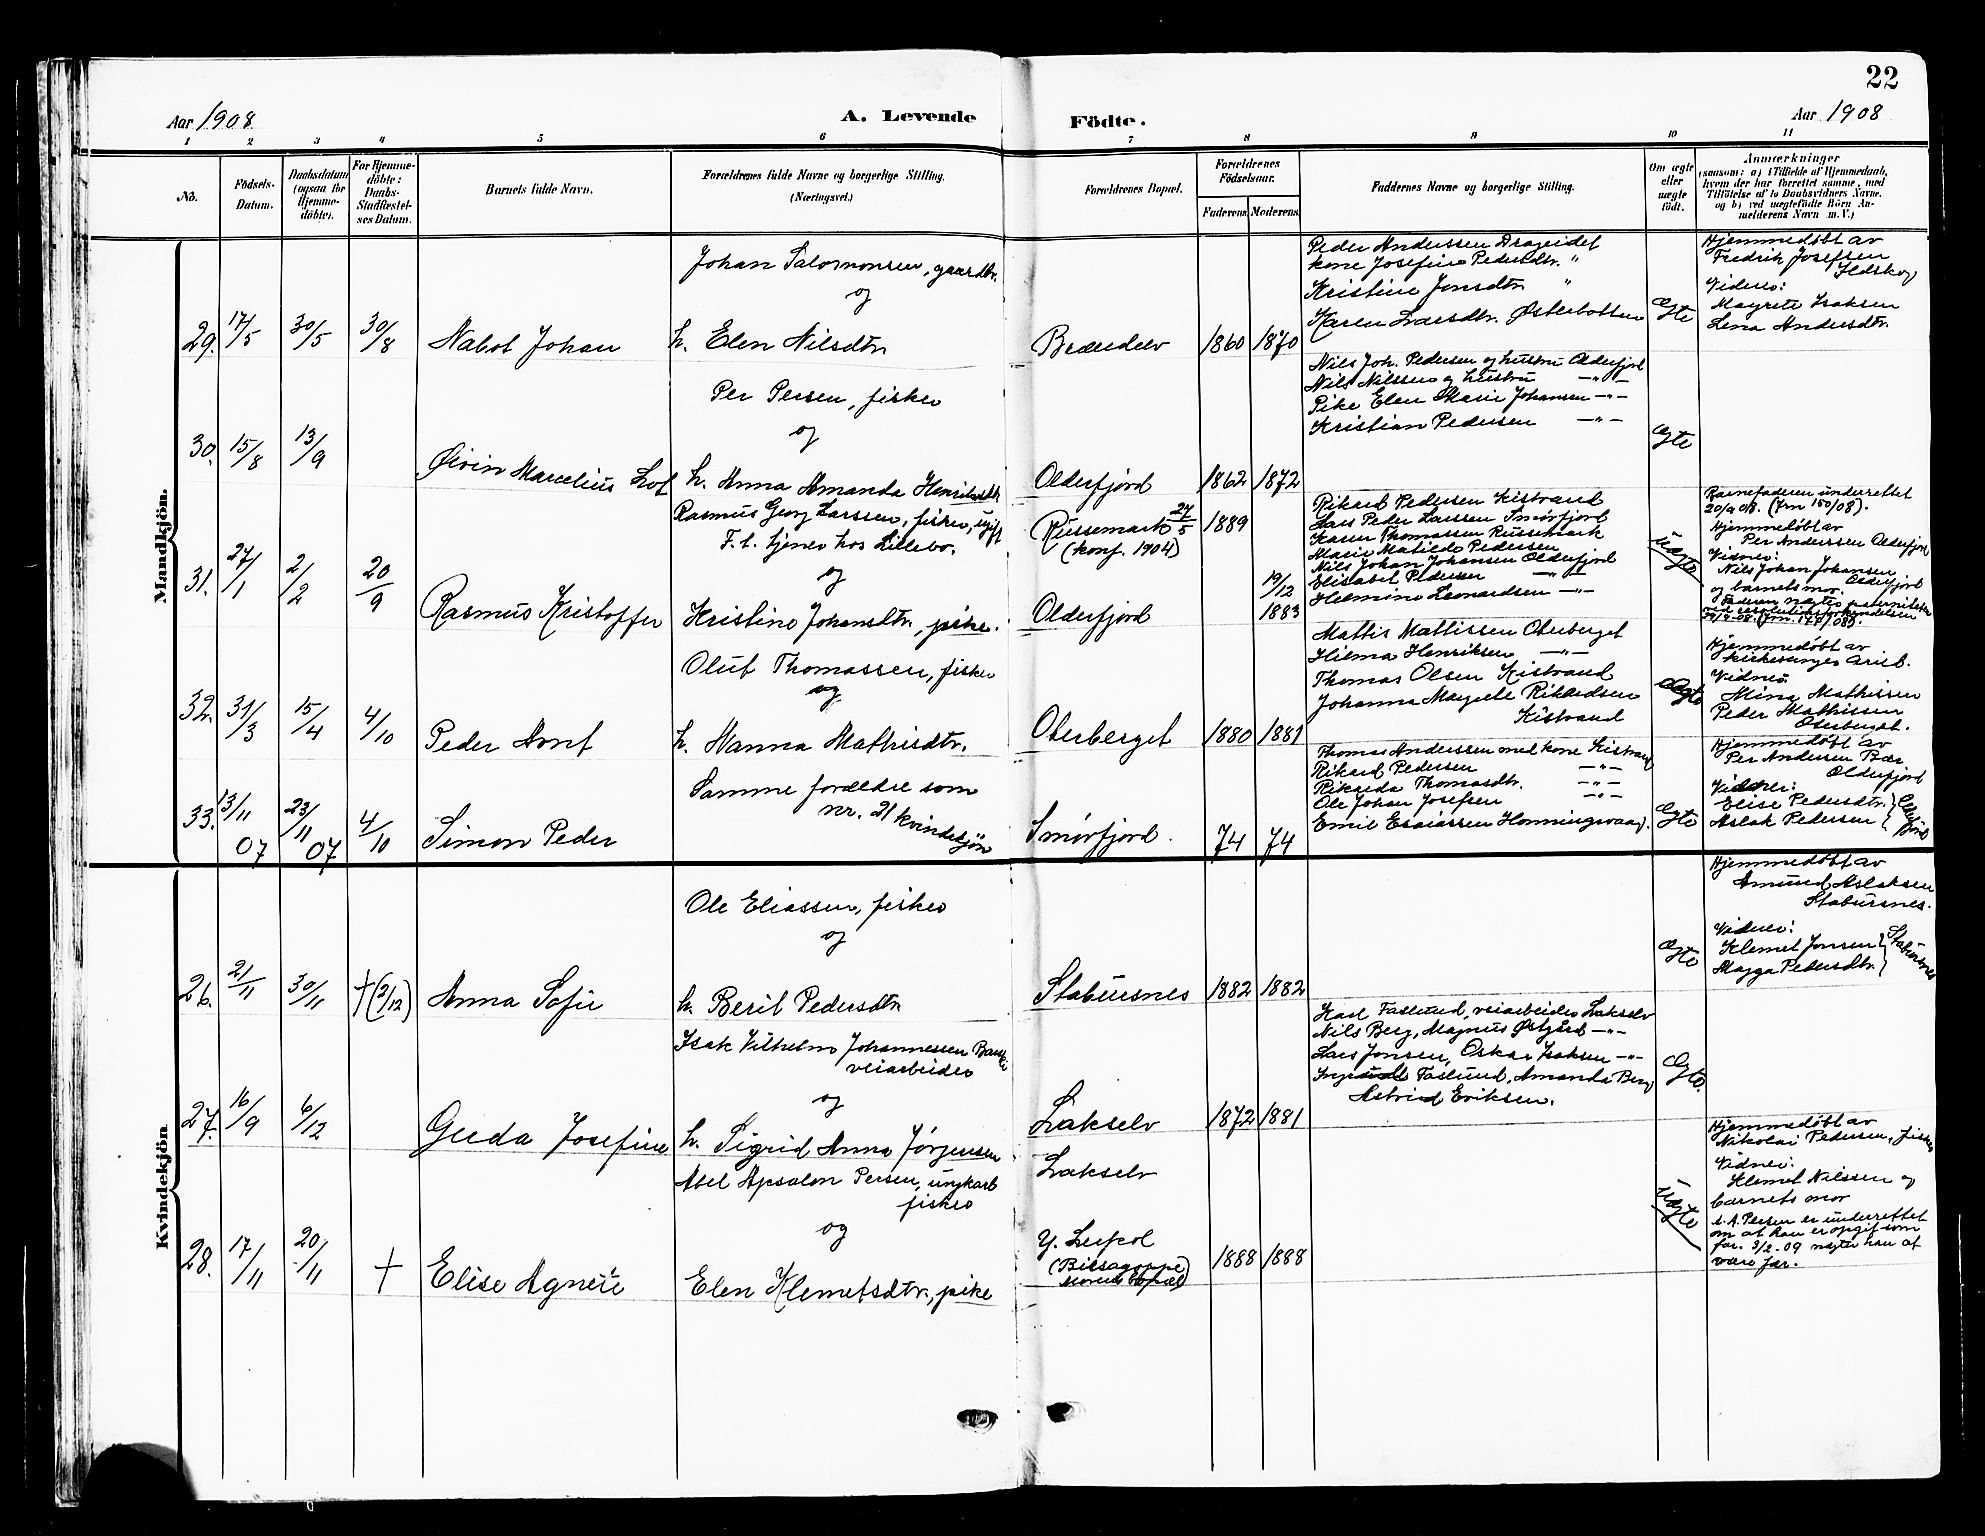 22
Aar 1908
A. Levende Födte.
Aar 1908
1 2 3 4 5 6 7 8 9 10 11
No.
Födsels-
Datum.
Daabsdatum
(ogsaa for
Hjemme-
døbte).
For Hjemme-
døbte:
Daabs-
Stadfæstel-
ses Datum.
Barnets fulde Navn.
Forældrenes fulde Navne og borgerlige Stilling.
(Næringsvei.)
Forældrenes Bopæl.
Forældrenes
Födselsaar.
Faderens Moderens
Faddernes Navne og borgerlige Stilling.
Om ægte
eller
uægte
født.
Anmærkninger
(saasom: a) i Tilfælde af Hjemmedaab,
hvem der har forrettet samme, med
Tilföielse af to Daabsvidners Navne.
og b) ved uægtefödte Börn An-
melderens Navn m. V.)
Mandkjön.
29. 17/5 30/5 30/8
Nabot Johan
Johan Salomonsen, gaardbr.
og
h. Elen Nilsdtr
Brændelv
1860 1870
Peder Anderssen Drageidet
kone Josefine Pedersdtr. "
Kristine Jonsdtr "
Karen Larsdtr. Østerbotten
Egte
Hjemmedøbt av
Fredrik Josefsen
Ildskog
Vidner:
Magrete Isaksen
Lena Andersdtr.
30. 15/8 13/9
Øivin Marcelius Lof
Per Persen, fisker
og
h. Anna Amanda Henriksdtr
Olderfjord
1862 1872
Nils Joh. Pedersen og hustru Olderfjord
Nils Nilssen og hustru —"—
Pike Elen Marie Johansen —"—
Kristian Pedersen —"—
Egte
31. 27/1 2/2 20/9
Rasmus Kristoffer
Rasmus Georg Larssen, fisker, ugift
F. t. tjener hos Lillebo.
og
Kristine Johansdtr., pike.
Russemark 27/5 1889
(konf. 1904)
Olderfjord
19/12
1883
Rikard Pedersen Kistrand
Lars Peder Larssen Smørfjord
Karen Thomassen Russemark
Marie Matilde Pedersen
Nils Johan Johansen Olderfjord
Elisabet Pedersen —"—
Helmine Leonardsen —"—
Uægte
Barnefaderen underrettet
20/9 08. (Jrn 150/08).
Hjemmedøbt av
Per Anderssen Olderfjord
Vidner:
Nils Johan Johansen
Olderfjord
og barnets mor.
Faderen nægter paterniteten
32. 31/3 15/4 4/10
Peder Arnt
Oluf Thomassen, fisker
og
h. Hanna Mathisdtr.
Oterberget
1880 1881
Mattis Mattissen Oterberget
Hilma Henriksen —"—
Thomas Olsen Kistrand
Johanna Magrete Rikardsen
Kistrand
Egte
Hjemmedøbt av
kirkesanger Arild.
Vidner
Mina Mathissen
Peder Mathissen
Oterberget.
33. 13/11 07 23/11 07 4/10
Simon Peder
Samme forældre som
nr. 21 kvindekjön
Smørfjord.
74 74
Thomas Anderssen med kone Kistrand
Rikard Pedersen —"—
Rikarda Thomasdtr. —"—
Ole Johan Josefsen —"—
Emil Esaiassen Honningsvaag.
Egte
Hjemmedøbt av
Per Andersen Bær
Olderfjord
Vidner:
Elise Pedersdtr.
Aslak Pedersen
Kvindekjön
26. 21/11 30/11 †(2/12)
Anna Sofie
Ole Eliassen, fisker
og
h. Beril Pedersdtr
Stabursnes
1882 1882
Egte
Hjemmedøbt av
Amund Aslaksen
Stabursnes.
Vidner:
Klemet Jonsen
Magga Pedersdtr.
Stabursnes
27. 16/9 6/12
Guda Josefine
Isak Vilhelm Johannessen
veiarbeider
og
h. Sigrid Anna Jörgensen
Lakselv
1872 1881
Karl Faslund, veiarbeider Lakselv
Nils Berg, Magnus Østgård —"—
Lars Jonsen, Oskar Isaksen —"—
Faslund, Amanda Berg
Astrid Eriksen.
Egte
28. 17/11 20/11 †
Elise Agnete
Abel Apsalon Persen, ungkarl
fisker
og
Elen Klemetsdtr., pike
Lakselv
Y. Leirpol
1888 1888
Uægte
Hjemmedøbt av
Nikolai Pedersen, fisker
Vidner:
Klemet Nilssen og
barnets mor
A. A. Persen er underrettet
om at han er opgit som
far. 3/2-09 nægter han at
være far.